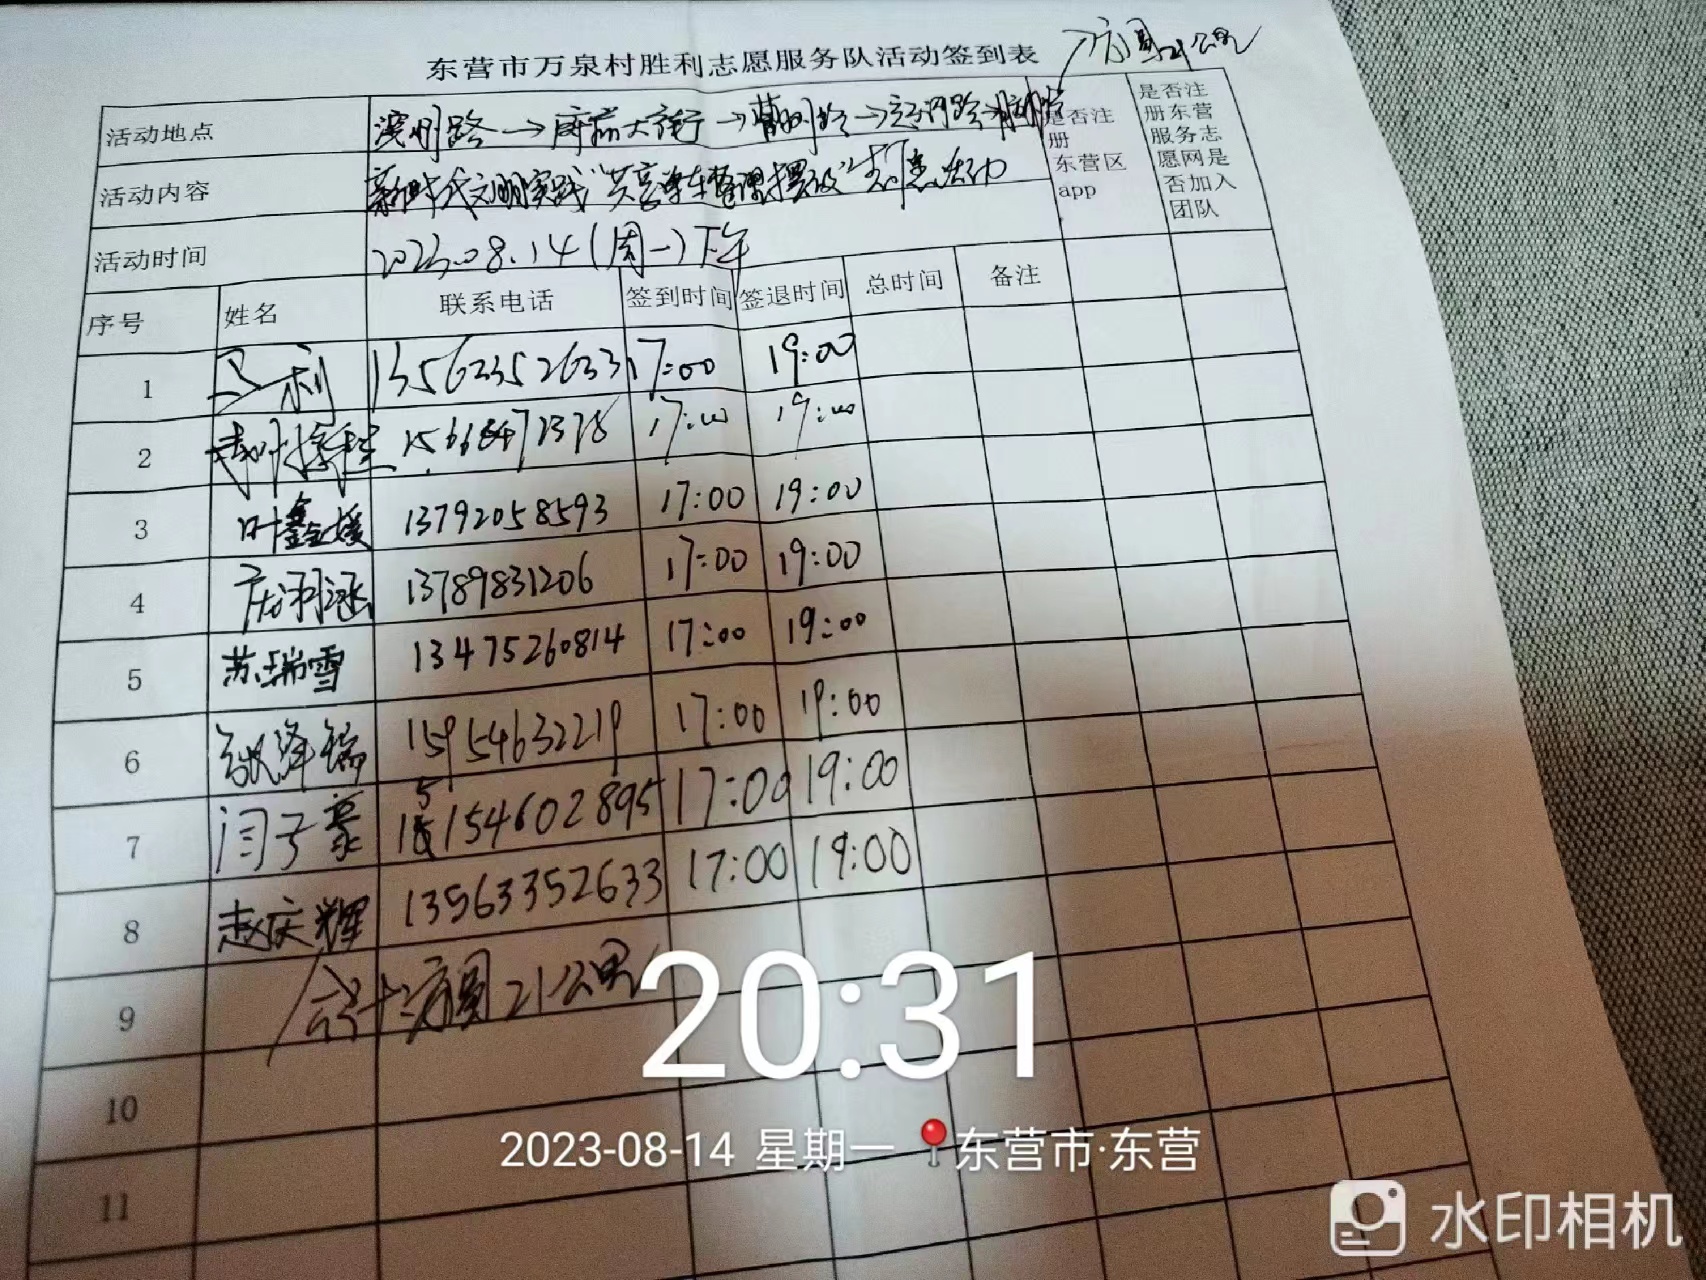 东营市万泉村胜利志愿服务队活动签到表 方圆21公里
活动地点 滨州路→府前大街→曹州路→
是否注册东营区app
是否注册东营服务志愿网是否加入团队
活动内容 新时代文明实践"共享单车整理摆放"志愿活动
活动时间 2023.08.14(周一)下午
序号 姓名 联系电话 签到时间 签退时间 总时间 备注
1 马利 13563352633 17:00 19:00
2 17:00 19:00
3 叶鑫媛 13792058593 17:00 19:00
4 13789831206 17:00 19:00
5 苏瑞雪 13475260814 17:00 19:00
6 泽瑞 15954632219 17:00 19:00
7 闫子豪 15154602895 17:00 19:00
8 赵庆辉 13563352633 17:00 19:00
9 合计:方圆21公里
10
11
20:31
2023-08-14 星期一 东营市·东营
水印相机